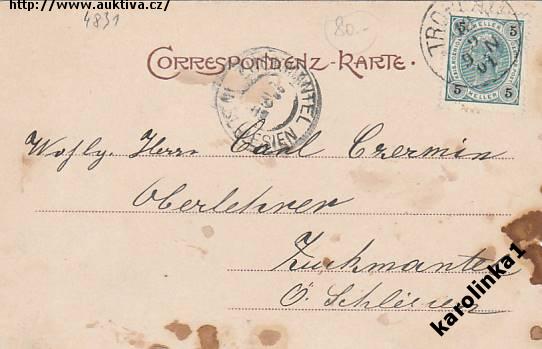 http://www.auktiva.cz/
4831
80.-
CORRESPONDENZ-KARTE.
TROPPAU
5 HELLER 5
5 HELLER 5
Wohlg. Herr Carl Czermin
Oberlehrer
Zuckmantel
Ö. Schlesien
karolinka1